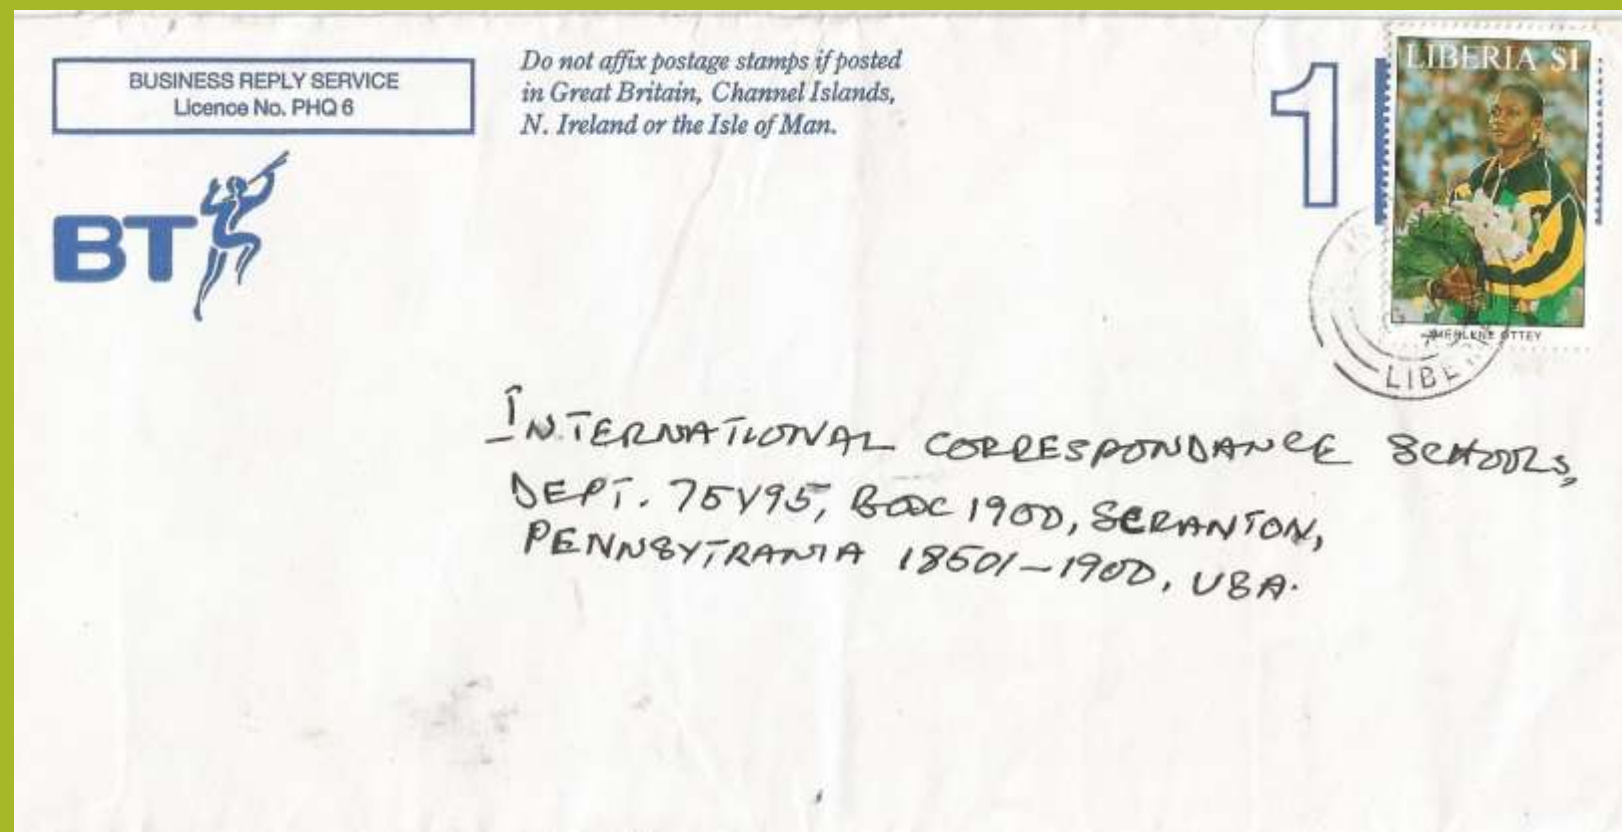 BUSINESS REPLY SERVICE
Licence No. PHQ 6
Do not affix postage stamps if posted
in Great Britain, Channel Islands,
N. Ireland or the Isle of Man.
1
LIBERIA $1
BT
MERLENE OTTEY
LIBERIA
INTERNATIONAL CORRESPONDANCE SCHOOLS,
DEPT. 75Y95, BOX 1900, SCRANTON,
PENNSYTRANIA 18501-1900, USA.